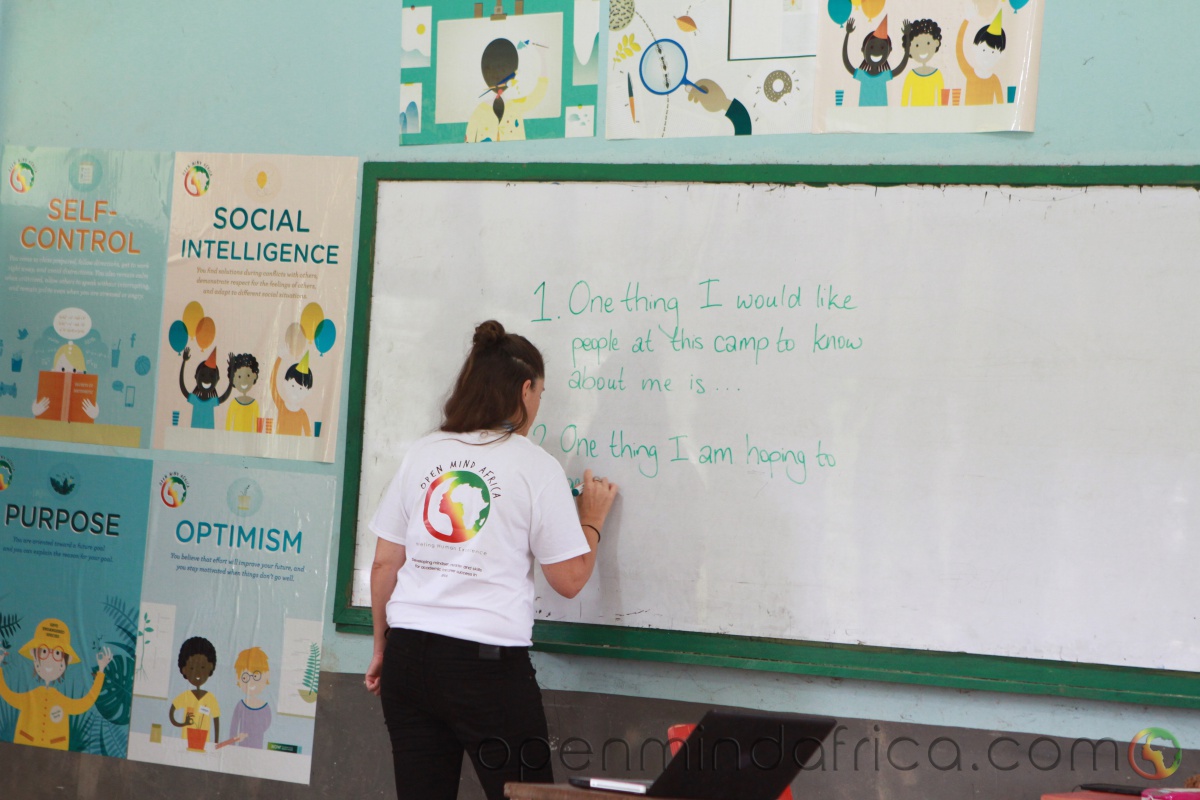 SELF-
CONTROL
SOCIAL
INTELLIGENCE
You find solutions during conflicts with others,
demonstrate respect for the feelings of others,
and adapt to different social situations.
PURPOSE
You are oriented toward a future goal
and you can explain the reason for your goal.
OPTIMISM
You believe that effort will improve your future, and
you stay motivated when things don't go well.
1. One thing I would like
people at this camp to know
about me is ...
2. One thing I am hoping to
OPEN MIND AFRICA
openmindafrica.com